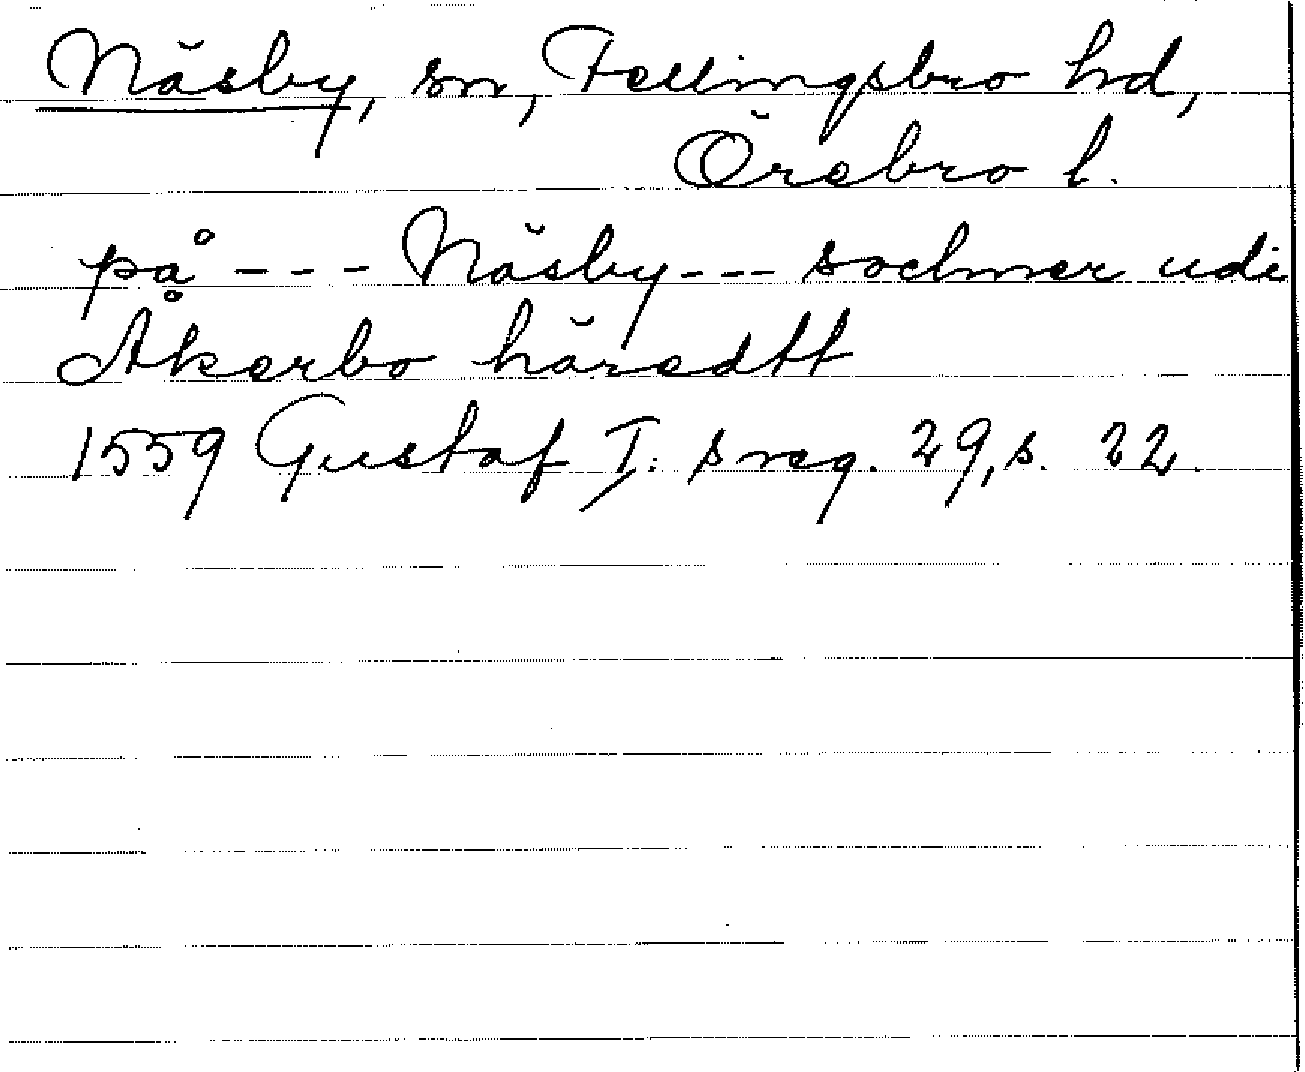 Näsby, sn, Fellingsbro hd,
Örebro l.
på --- Näsby --- sochner udi
Åkerbo häredtt
1559 Gustaf I: s reg. 29, s. 22.